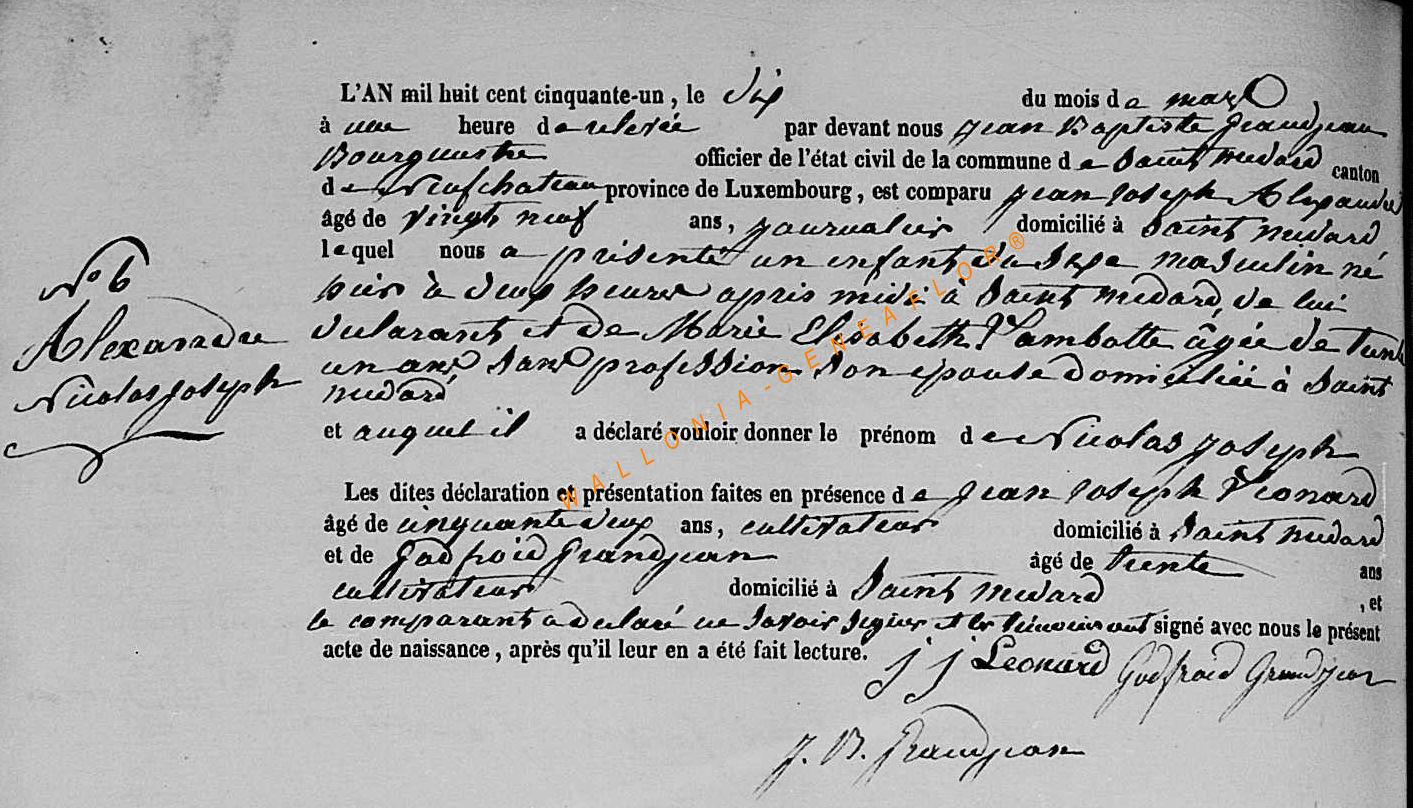 L'AN mil huit cent cinquante-un, le dix du mois de mars,
à une heure de relevée par devant nous Jean Baptiste Grandjean
Bourgmestre officier de l'état civil de la commune de Saint Medard canton
de Neufchateau province de Luxembourg, est comparu Jean Joseph Alexandre
âgé de vingt neuf ans, journalier domicilié à Saint Medard
lequel nous a présenté un enfant du sexe masculin né
hier à deux heures après midi à Saint Medard, de lui
déclarant et de Marie Elisabeth Lambotte âgée de trente
un ans sans profession son épouse domiciliée à Saint
Medard
N° 6
Alexandre
Nicolas Joseph
et auquel il a déclaré vouloir donner le prénom de Nicolas Joseph
Les dites déclaration et présentation faites en présence de Jean Joseph Léonard
âgé de cinquante deux ans, cultivateur domicilié à Saint Medard
et de Godfroid Grandjean âgé de trente ans
cultivateur domicilié à Saint Medard, et
le comparant a déclaré ne savoir signer et les témoins ont signé avec nous le présent
acte de naissance, après qu'il leur en a été fait lecture.
j j Leonard Godfroid Grandjean
J. B. Grandjean
WALLONIA-GENEAFLOR®